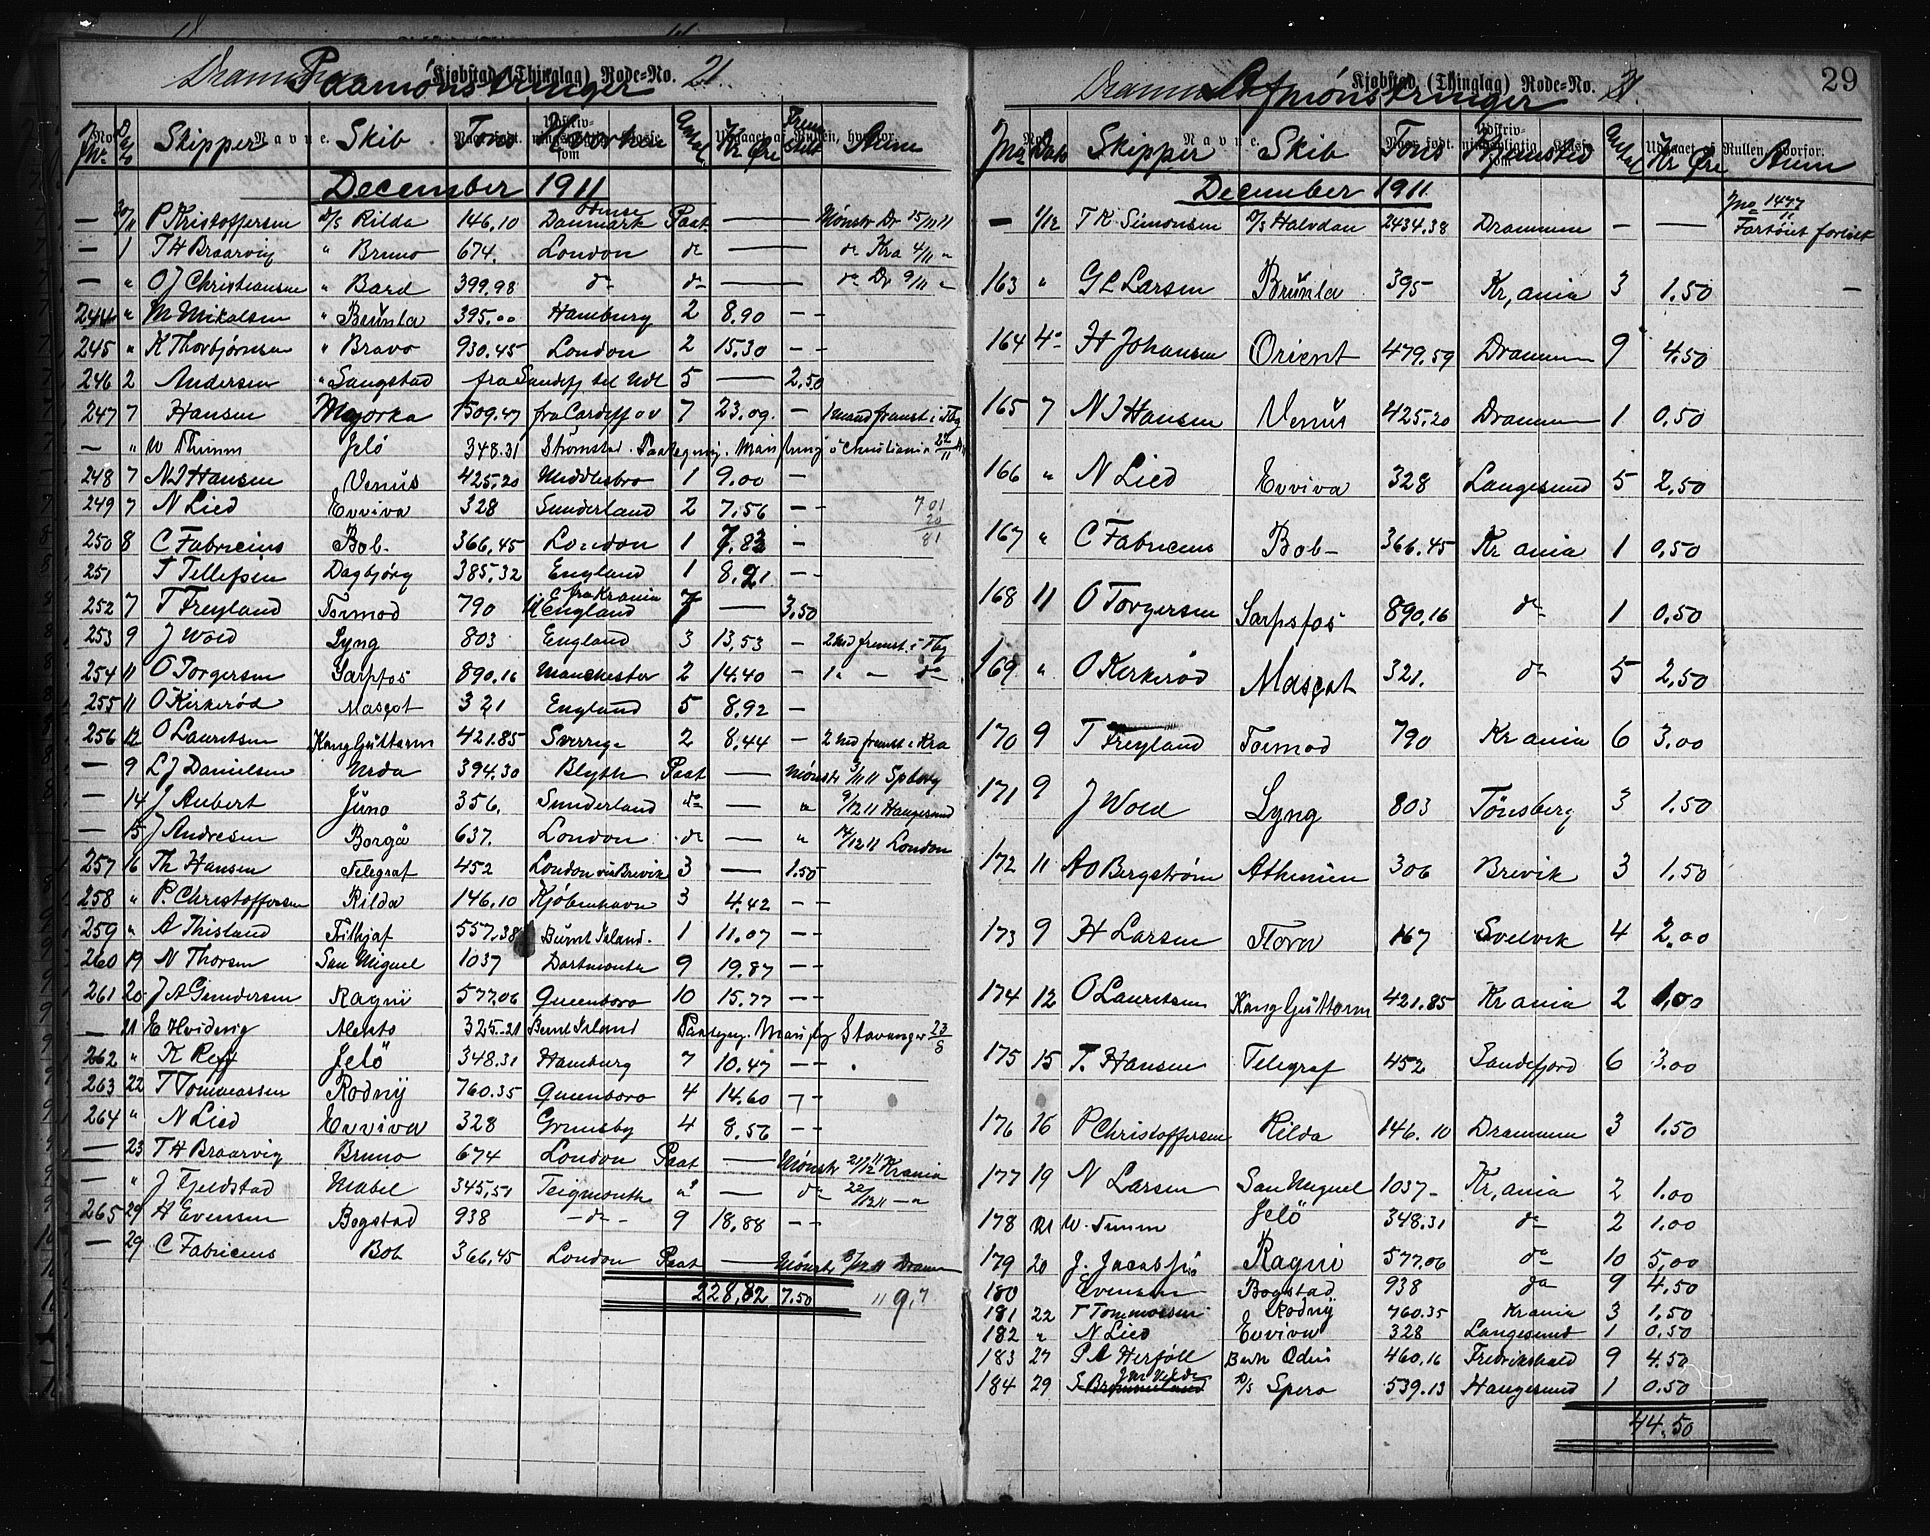 Drammens Kjøbstad (Thinglag) Rode-No. 21
Paamönstringer
No. Navne. Naar født. Udskriv-ningspligtig som Klasse. Udgaaet af Rullen, hvorfor.
Jno Dato Skipper Skib Tons Hvorhen Antal Kr Øre Anm
December 1911
— 30/11 P Kristoffersen D/S Rilda 146.10 Odense Danmark Paat — Mönstr Dr 15/11 11
— 1 T H Braarvig " Bruno 674. London do — do Kra 4/11 "
— " O J Christiansen " Bard 399.98 do do — do Dr 9/11 "
244 " M Mikalsen " Brunla 395.00 Hamburg 2 8.90 — —
245 " K Thorbjörnsen " Bravo 930.45 London 2 15.30 — —
246 2 Andersen " Sangstad fra Sandefj til Udl 5 — 2.50
247 7 Hansen Majorka 1509.47 fra Cardiff ov 7 23.09. — 1 mand fremst i Tbg
— " W Thimm Jelö 348.31 Strömstad. Paategning. Christiania
248 7 N J Hansen Venus 425.20 Middlesbro 1 9.00 — —
249 7 N Lied Evviva 328 Sunderland 2 7.56 — — 7 01
20
250 8 C Fabricius Bob- 366.45 London 1 7.83 — 81
251 T Tellefsen Dagbjörg 385.32 England 1 8.21 — —
252 7 T Freyland Tormod 790 fra Krania til England 7 — 3.50
253 9 J Wold Lyng 803 England 3 13.53 — 2 md fremst. i Tbg
254 11 O Torgersen Sarpfos 890.16 Manchester 2 14.40 — 1 " — do
255 11 O Kirkeröd Mascot 321 England 5 8.92 —
256 12 O Lauritsen Kong Guttorm 421.85 Sverrige 2 8.44 — 2 md fremst i Kra
— 9 L J Danielsen Urda 394.30 Blyth Paat — Mönstr 3/11 11 Spborg
— 14 J Aubert Juno 356. Sunderland do — " 9/12 11 Haugesund
— 15 J Andresen Borgå 637. London do — " 14/12 11 London
257 16 Th Hansen Telegraf 452 London via Brevik 3 — 1.50
258 " P. Christoffersen Rilda 146.10 Kjöbenhavn 3 4.42 — —
259 " A Thisland Frithjof 557.38 Burnt Island. 1 11.07 — —
260 19 N Thorsen San Miguel 1037 Dartmouth 9 19.87 — —
261 20 J A Gundersen Ragni 577.06 Queenboro 10 15.77 — —
— 21 E Hviding Alento 325.21 Burnt Island Paategng. Stavanger 23/8
262 " K Reff Jelö 348.31 Hamburg 7 10.47 — .
263 22 T Tommassen Rodny 760.35 Queenboro 4 14.60 — —
264 " N Lied Evviva 328 Grimsby 4 8.56 — —
— 23 T H Braarvig Bruno 674 London Paat — Mönstr 21/12 11 Krania
— " J Fjeldstad Mabel 345.51 Teignmouth do — do 22/12 11 — "
265 29 H Evensen Bogstad 938 — do — 9 18.88 — —
— 29 C Fabricius Bob 366.45 London Paat — Mönstr 8/12 11 Dramn
228,82 7.50 11 9.7
Drammens Kjøbstad (Thinglag) Rode-No. 21 29
Afmönstringer
No. Navne. Naar født. Udskriv-ningspligtig som Klasse. Udgaaet af Rullen, hvorfor.
Jno Dato Skipper Skib Tons Hjemsted Antal Kr Øre Anm
December 1911
— 1/12 T K Simonsen D/S Halvdan 2434.38 Drammen — — Jno 1477/11 Fartöiet forlist
163 " G L Larsen Brunla 395 Kr,ania 3 1.50 —
164 4 H Johansen Orient 479.59 Drammen 9 4.50
165 7 N J Hansen Venus 425.20 Drammen 1 0.50
166 " N Lied Evviva 328 Langesund 5 2.50
167 " C Fabricius Bob — 366.45 Kr ania 1 0.50
168 11 O Torgersen Sarpsfos 890.16 do 1 0.50
169 " O Kirkeröd Mascot 321. do 5 2.50
170 9 T Freyland Tormod 790 Kr ania 6 3.00
171 9 J Wold Lyng 803 Tönsberg 3 1.50
172 11 A O Bergström Athenien 306 Brevik 3 1.50
173 9 H Larsen Flora 167 Svelvik 4 2.00
174 12 O Lauritsen Kong Guttorm 421.85 Kr ania 2 1.00
175 15 T. Hansen Telegraf 452 Sandefjord 6 3.00
176 16 P Christoffersen Rilda 146.10 Drammen 3 1.50
177 19 N Larsen San Miguel 1037- Kr,ania 2 1.00
178 21 W. Timm Jelö 348.31 do 2 1.00
179 20 J. Ragni 577.06 do 10 5.00
180 Evensen Bogstad 938 do 9 4.50
181 22 T Tommassen Rodny 760.35 Krania 3 1.50
182 " N Lied Evviva 328 Langesund 1 0.50
183 27 P A Herföll Bark Odin 460.16 Fredrikshald 9 4.50
184 29 D/S Spero 539.13 Haugesund 1 0.50
44.50